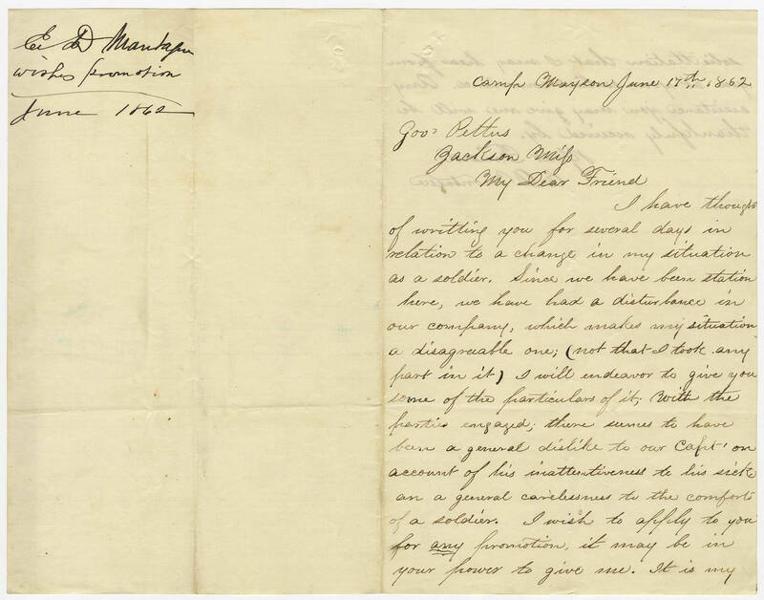 E D
wishes promotion
June 1862
Camp June 17th 1862
Gov Pettus
Jackson Miss
My Dear Friend
I have thought
of writting you for several days in
relation to a change in my situation
as a soldier. Since we have been station
here, we have had a disturbance in
our company, which makes my situation
a disagreeable one; (not that I took any
part in it) I will endeavor to give you
some of the particulars of it; With the
parties engaged; there semes to have
been a general dislike to our Capt' on
account of his inattentiveness to his sick
an a general carelessness to the comfort
of a soldier. I wish to apply to you
for any promotion, it may be in
your power to give me. It is my